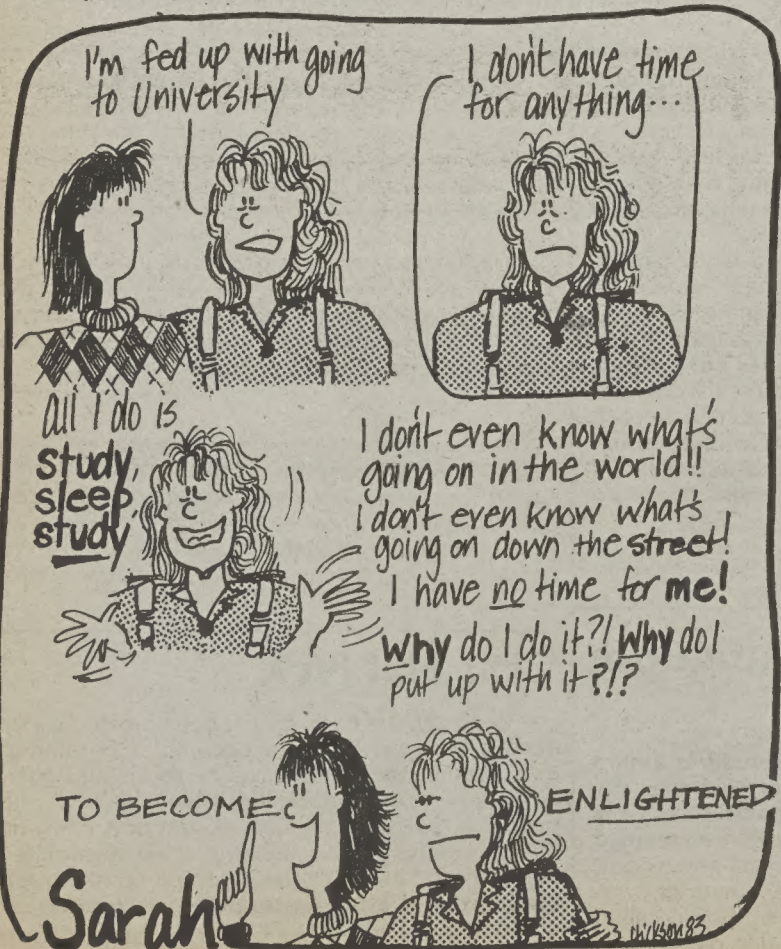 I'm fed up with going
to University
I don't have time
for anything...
all I do is
study,
sleep,
study,
I don't even know what's
going on in the world!!
I don't even know what's
going on down the street!
I have no time for me!
Why do I do it?! Why do I
put up with it?!?
TO BECOME
ENLIGHTENED
Sarah